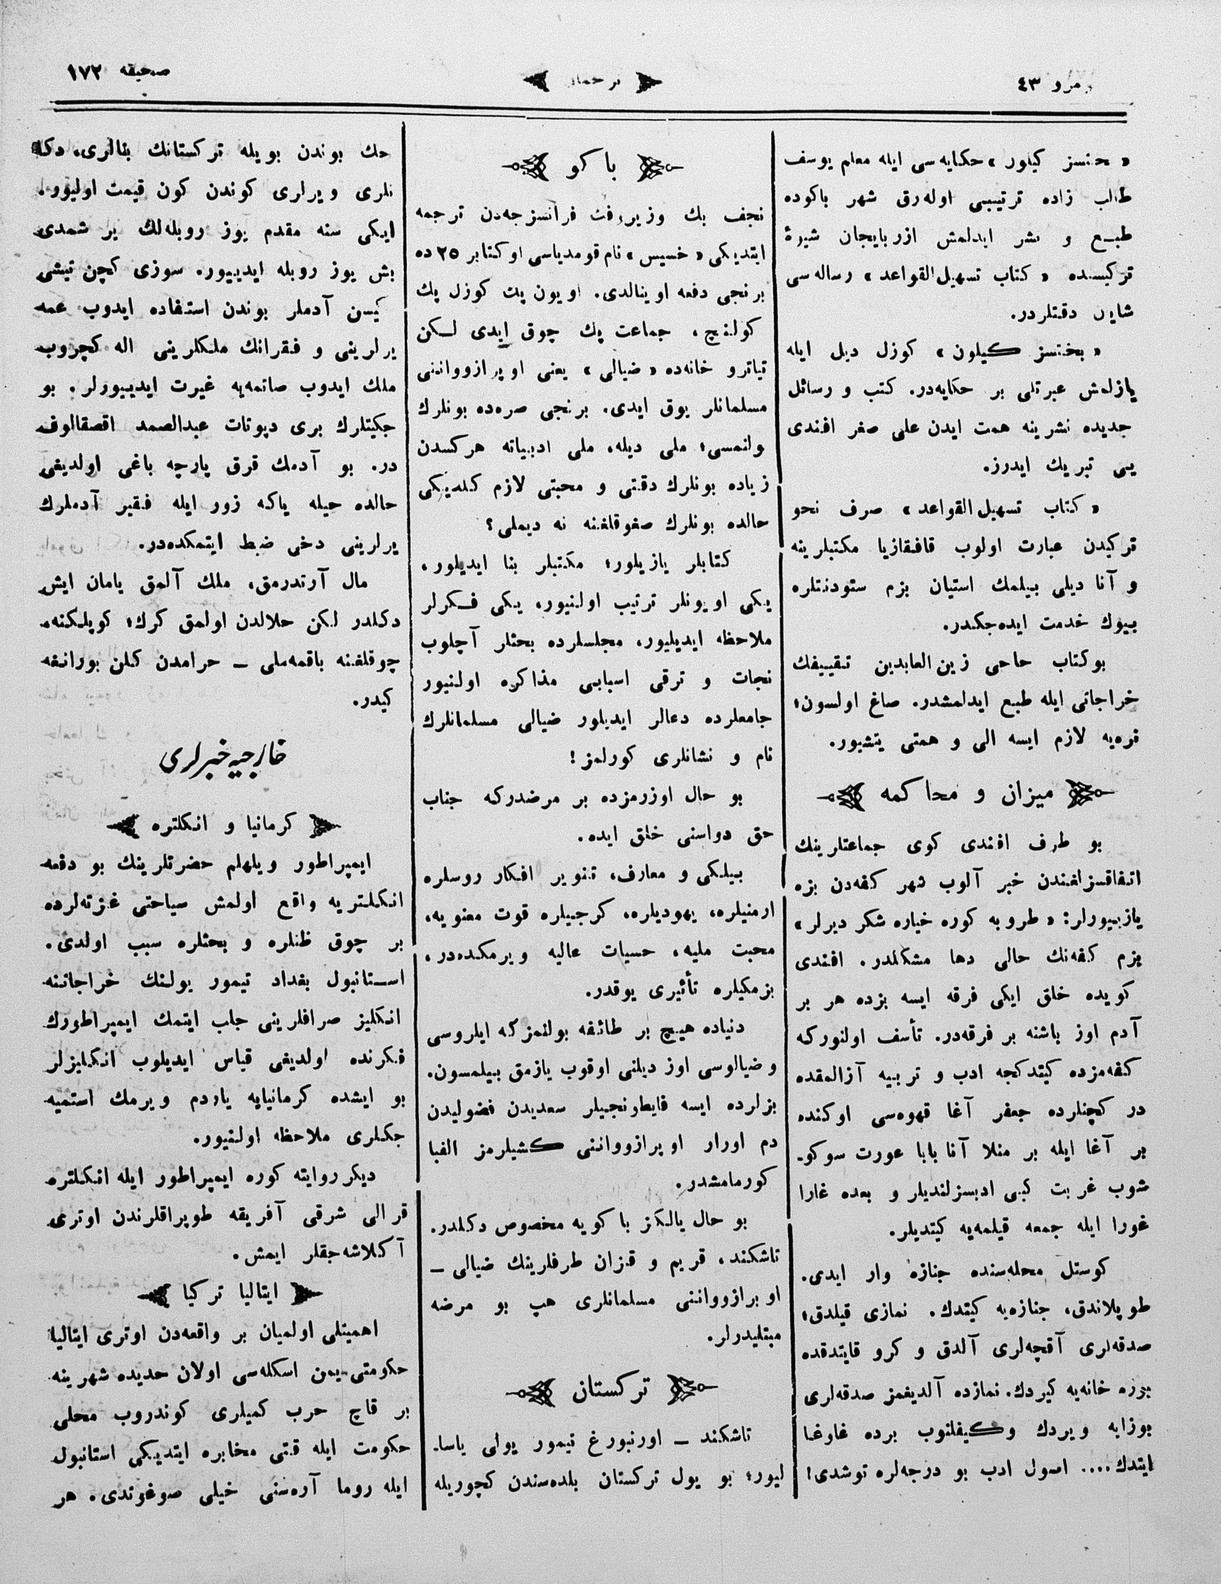 نومرو ٤٣
ترجمان
صحيفه ١٧٢
« بختسز كيلور » حكايه‌سى ايله معلم يوسف
طالب زاده ترتيبى اوله‌رق شهر باكوده
طبع و نشر ايدلمش ازربايجان شيوۀ
تركيسنده « كتاب تسهيل القواعد » رساله‌سى
شايان دقتلردر.
« بختسز كيلون » كوزل دبل ايله
يازلمش عبرتلى بر حكايه‌در. كتب و رسائل
جديده نشرينه همت ايدن على صغر افندى
يى تبريك ايدرز.
« كتاب تسهيل القواعد » صرف نحو
تركيدن عبارت اولوب قافقازيا مكتبلرينه
و آنا ديلى بيلمك استيان بزم ستودنتلره
بيوك خدمت ايده‌جكدر.
بوكتاب حاجى زين العابدين تقييفك
خراجاتى ايله طبع ايدلمشدر. صاغ اولسون؛
نره‌يه لازم ايسه الى و همتى يتشيور.
ميزان و محاكمه
بو طرف افندى كوى جماعتلرينك
اتفاقسزلغندن خبر آلوب شهر كفه‌دن بزه
يازييورلر: « طرويه كوره خياره شكر ديرلر »
بزم كفه‌نك حالى دها مشكلدر. افندى
كويده خلق ايكى فرقه ايسه بزده هر بر
آدم اوز باشنه بر فرقه‌در. تأسف اولنوركه
كفه‌مزده كيتدكجه ادب و تربيه آزالمقده
در كچنلرده جعفر آغا قهوه‌سى اوكنده
بر آغا ايله بر منلا آنا بابا عورت سوكو-
شوب غربت كبى ادبسزلنديلر و بعده غارا
غورا ايله جمعه قيلمه‌يه كيتديلر.
كوستل محله‌سنده جنازه وار ايدى.
طوپلاندق، جنازه‌يه كيتدك. نمازى قيلدق؛
صدقه‌لرى آقچه‌لرى آلدق و كرو قايتدقده
بوزه خانه‌يه كيردك. نمازده آلديغمز صدقه‌لرى
بوزايه ويردك وكيفلنوب برده غاوغا
ايتدك.... اصول ادب بو درجه‌لره توشدى!
باكو
نجف بك وزيروف فرانسزجه‌دن ترجمه
ايتديكى « خسيس » نام قومدياسى اوكتابر ٢٥ ده
برنجى دفعه اوينالدى. اويون پك كوزل پك
كولنچ، جماعت پك چوق ايدى لكن
تياترو خانه‌ده « ضيالى » يعنى اوپرازوواننى
مسلمانلر يوق ايدى. برنجى صره‌ده بونلرك
ولنمسى؛ ملى ديله، ملى ادبياته هركسدن
زياده بونلرك دقتى و محبتى لازم كلديكى
حالده بونلرك صغوقلغنه نه ديملى؟
كتابلر يازيلور؛ مكتبلر بنا ايديلور،
يكى اويونلر ترتيب اولنيور، يكى فكرلر
ملاحظه ايديليور، مجلسلرده بحثلر آچلوب
نجات و ترقى اسبابى مذاكره اولنيور
جامعلرده دعالر ايديلور ضيالى مسلمانلرك
نام و نشانلرى كورلمز!
بو حال اوزرمزده بر مرضدركه جناب
حق دواسنى خلق ايده.
بيلكى و معارف، تنوير افكار روسلره
ارمنيلره، يهوديلره، كرجيلره قوت معنويه،
محبت مليه، حسيات عاليه ويرمكده‌در،
بزمكيلره تأثيرى يوقدر.
دنياده هيچ بر طائفه بولنمزكه ايلروسى
و ضيالوسى اوز ديلنى اوقوب يازمق بيلمسون.
بزلرده ايسه قايطونجيلر سعديدن فضوليدن
دم اورار اوپرازوواننى كشيلرمز الفبا
كورمامشدر.
بو حال يالكز باكويه مخصوص دكلدر.
تاشكند، قريم و قزان طرفلرينك ضيالى –
اوبرازوواننى مسلمانلرى هپ بو مرضه
مبتليدرلر.
تركستان
تاشكند – اورنبورغ تيمور يولى ياسا-
ليور؛ بو يول تركستان بلده‌سندن كچوريله
جك بوندن بويله تركستانك بنالرى، دكا
نلرى و يرلرى كوندن كون قيمت اوليور.
ايكى سنه مقدم يوز روبله‌لك ير شمدى
بش يوز روبله ايدييور. سوزى كچن تيشى
كيسن آدملر بوندن استفاده ايدوب عمه
يرلرينى و فقرانك ملكلرينى اله كچروب
ملك ايدوب صاتمه‌يه غيرت ايدييورلر. بو
جكيتلرك برى دپوتات عبدالصمد اقصقالوف
در. بو آدمك قرق پارچه باغى اولديغى
حالده حيله ياكه زور ايله فقير آدملرك
يرلرينى دخى ضبط ايتمكده‌در.
مال آرتدرمق، ملك آلمق يامان ايش
دكلدر لكن حلالدن اولمق كرك؛ كوپلكنه،
چوقلغنه باقمه‌ملى – حرامدن كلن بورانغه
كيدر.
خارجيه خبرلرى
كرمانيا و انكلتره
ايمپراطور ويلهلم حضرتلرينك بو دفعه
انكلتريه واقع اولمش سياحتى غزته‌لرده
بر چوق ظنلره و بحثلره سبب اولدى.
استانبول بغداد تيمور يولنك خراجاتنه
انكليز صرافلرينى جلب ايتمك ايمپراطورك
فكرنده اولديغى قياس ايديلوب انكليزلر
بو ايشده كرمانيايه ياردم ويرمك استميه
جكلرى ملاحظه اولنيور.
ديكر روايته كوره ايمپراطور ايله انكلتره
قرالى شرقى آفريقه طوپراقلرندن اوترى
آكلاشه‌جقلر ايمش.
ايتاليا تركيا
اهميتلى اولميان بر واقعه‌دن اوترى ايتاليا
حكومتى يمن اسكله‌سى اولان حديده شهرينه
بر قاچ حرب كميلرى كوندروب محلى
حكومت ايله قتى مخابره ايتديكى استانبول
ايله روما آره‌سنى خيلى صوغوتدى. هر